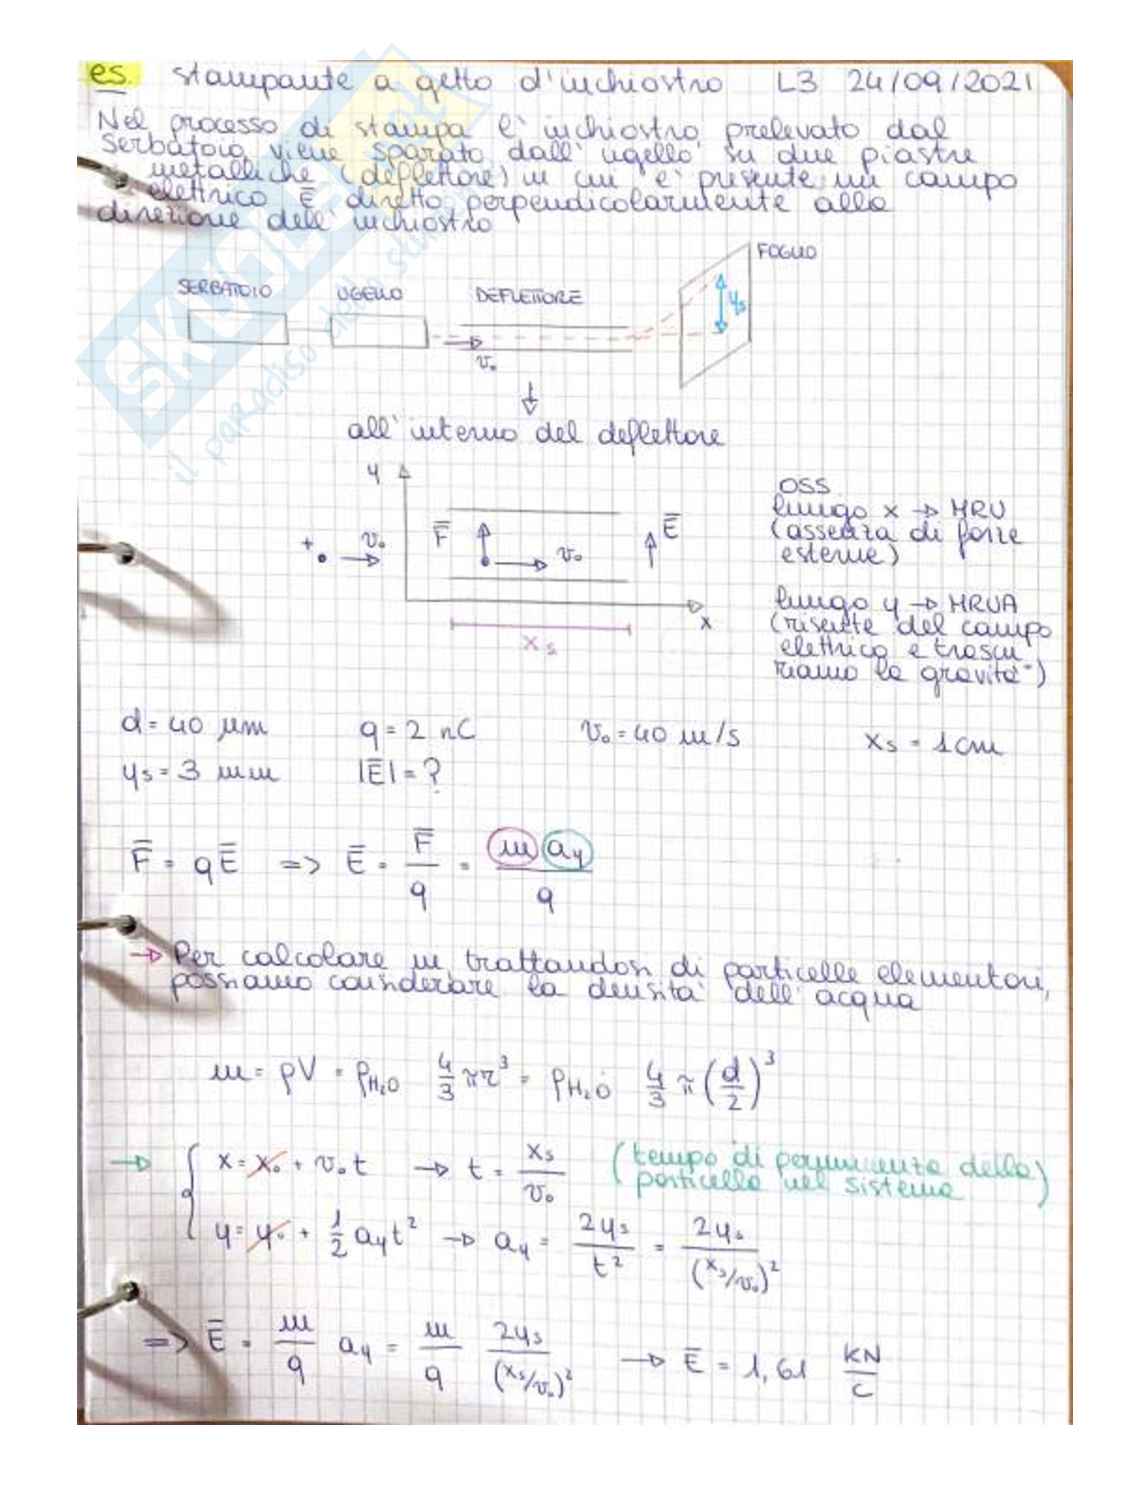 es. stampante a getto d'inchiostro L3 24/09/2021
Nel processo di stampa l'inchiostro prelevato dal
serbatoio viene sparato dall'ugello su due piastre
metalliche (deflettore) in cui è presente un campo
elettrico E̅ diretto perpendicolarmente alla
direzione dell'inchiostro
FOGLIO
SERBATOIO UGELLO DEFLETTORE
ys
v₀
all'interno del deflettore
y
OSS
lungo x → MRU
(assenza di forze
esterne)
+ v₀ F̅ v₀ E̅
lungo y → MRUA
(risente del campo
elettrico e trascu
riamo la gravità)
x
xs
d = 40 μm q = 2 nC v₀ = 40 m/s xs = 1 cm
ys = 3 mm |E̅| = ?
F̅ = qE̅ => E̅ = F̅/q = m ay/q
→ Per calcolare m, trattandosi di particelle elementari,
possiamo considerare la densità dell'acqua
m = ρV = ρH₂O 4/3 πr³ = ρH₂O 4/3 π (d/2)³
→ { x = x₀ + v₀t → t = xs/v₀ (tempo di permanenza della
particella nel sistema)
y = y₀ + 1/2 ay t² → ay = 2ys/t² = 2ys/(xs/v₀)²
=> E̅ = m/q ay = m/q 2ys/(xs/v₀)² → E̅ = 1,61 kN/C
SKUOLA.net
il paradiso dello studente